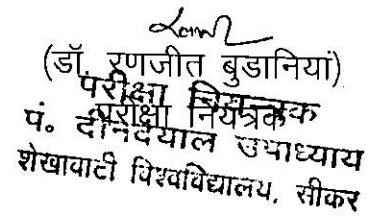 (डॉ. रणजीत बुडानियां)
परीक्षा नियन्त्रक
परीक्षा नियंत्रक
पं. दीनदयाल उपाध्याय
शेखावाटी विश्वविद्यालय, सीकर